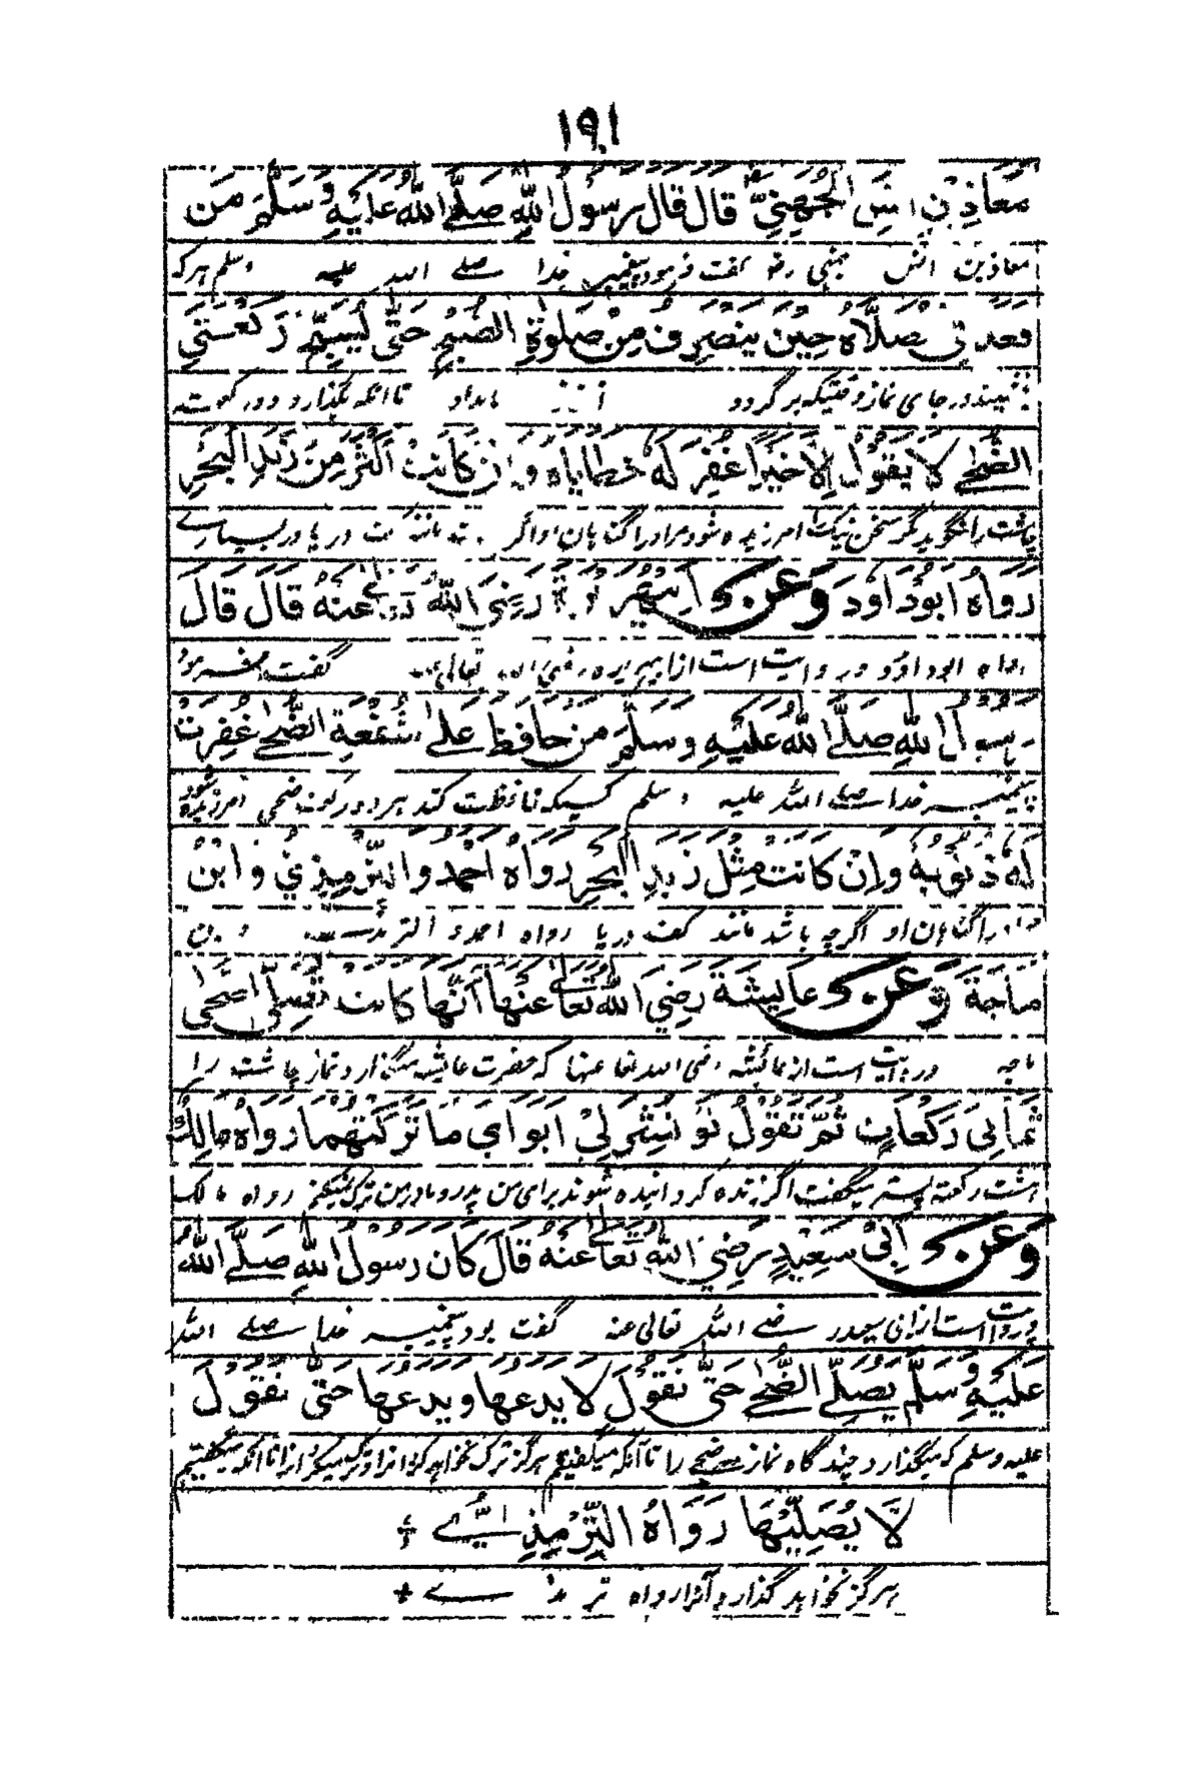 ١٩١
مُعَاذِ بْنِ اَنَسِ الْجُهَنِيِّ قَالَ قَالَ رَسُولُ اللّٰهِ صَلَّے اللّٰهُ عَلَيْهِ وَسَلَّمَ مَن
معاذ بن انس جهنی رض گفت فرمود پیغمبر خدا صلے الله علیه وسلم هرکه
قعد فِي مُصَلَّاهُ حِيْنَ يَنْصَرِفُ مِنْ صَلٰوةِ الصُّبْحِ حَتّٰى يُسَبِّحَ رَكْعَتَيِ
بنشیند در جای نماز وقتیکه برگردد از نماز بامداد تا آنکه بگذارد دو رکعت
الضُّحٰے لَا يَقُوْلُ اِلَّا خَيْرًا غُفِرَ لَهٗ خَطَايَاهُ وَاِنْ كَانَتْ اَكْثَرَ مِنْ زَبَدِ الْبَحْرِ
چاشت را نگوید مگر سخن نیک امرزیده شود مر او را گناهان او اگر کف دریا در بسیاری
رَوَاهُ اَبُوْدَاوٗدَ وَعَنْ اَبِيْ هُرَيْرَةَ رَضِيَ اللّٰهُ تَعَالٰى عَنْهُ قَالَ قَالَ
رواه ابوداوٗد و روایت است از ابی هریره رضی الله تعالی گفت فرمود
رَسُوْلُ اللّٰهِ صَلَّے اللّٰهُ عَلَيْهِ وَسَلَّمَ مَنْ حَافَظَ عَلٰى شُفْعَةِ الضُّحٰے غُفِرَتْ
پیغمبر خدا صلے الله علیه وسلم کسیکه محافظت کند بر دو رکعت ضحی امرزیده شود
لَهٗ ذُنُوْبُهٗ وَاِنْ كَانَتْ مِثْلَ زَبَدِ الْبَحْرِ رَوَاهُ اَحْمَدُ وَالتِّرْمِذِيُّ وَابْنُ
او را گناهان او اگرچه باشد مانند کف دریا رواه احمد و الترمذی و بن
مَاجَةَ وَعَنْ عَائِشَةَ رَضِيَ اللّٰهُ تَعَالٰى عَنْهَا اَنَّهَا كَانَتْ تُصَلِّي الضُّحٰى
ماجه و روایت است از عائشه رضی الله تعا عنها که حضرت عائشه میگذارد نماز چاشت را
ثَمَانِيَ رَكَعَاتٍ ثُمَّ تَقُوْلُ لَوْ نُشِرَ لِيْ اَبَوَايَ مَا تَرَكْتُهَا رَوَاهُ مَالِكٌ
هشت رکعت پستر میگفت اگر زنده گردانیده شوند برای من پدر و مادر من ترک نمیکنم رواه مالک
وَعَنْ اَبِيْ سَعِيْدٍ رَضِيَ اللّٰهُ تَعَالٰى عَنْهُ قَالَ كَانَ رَسُوْلُ اللّٰهِ صَلَّے اللّٰهُ
و روایت است از ابی سعید رضے الله تعالی عنه گفت بود پیغمبر خدا صلے الله
عَلَيْهِ وَسَلَّمَ يُصَلِّے الضُّحٰے حَتّٰى نَقُوْلَ لَا يَدَعُهَا وَيَدَعُهَا حَتّٰى نَقُوْلَ
علیه وسلم که میگذارد چندگاه نماز ضحی را تا آنکه میگفتیم هرگز ترک نخواهد کرد انرا و ترک میکرد انرا تا آنکه میگفتیم
لَا يُصَلِّيْهَا رَوَاهُ التِّرْمِذِيُّ
هرگز نخواهد گذارد آنرا رواه ترمذے